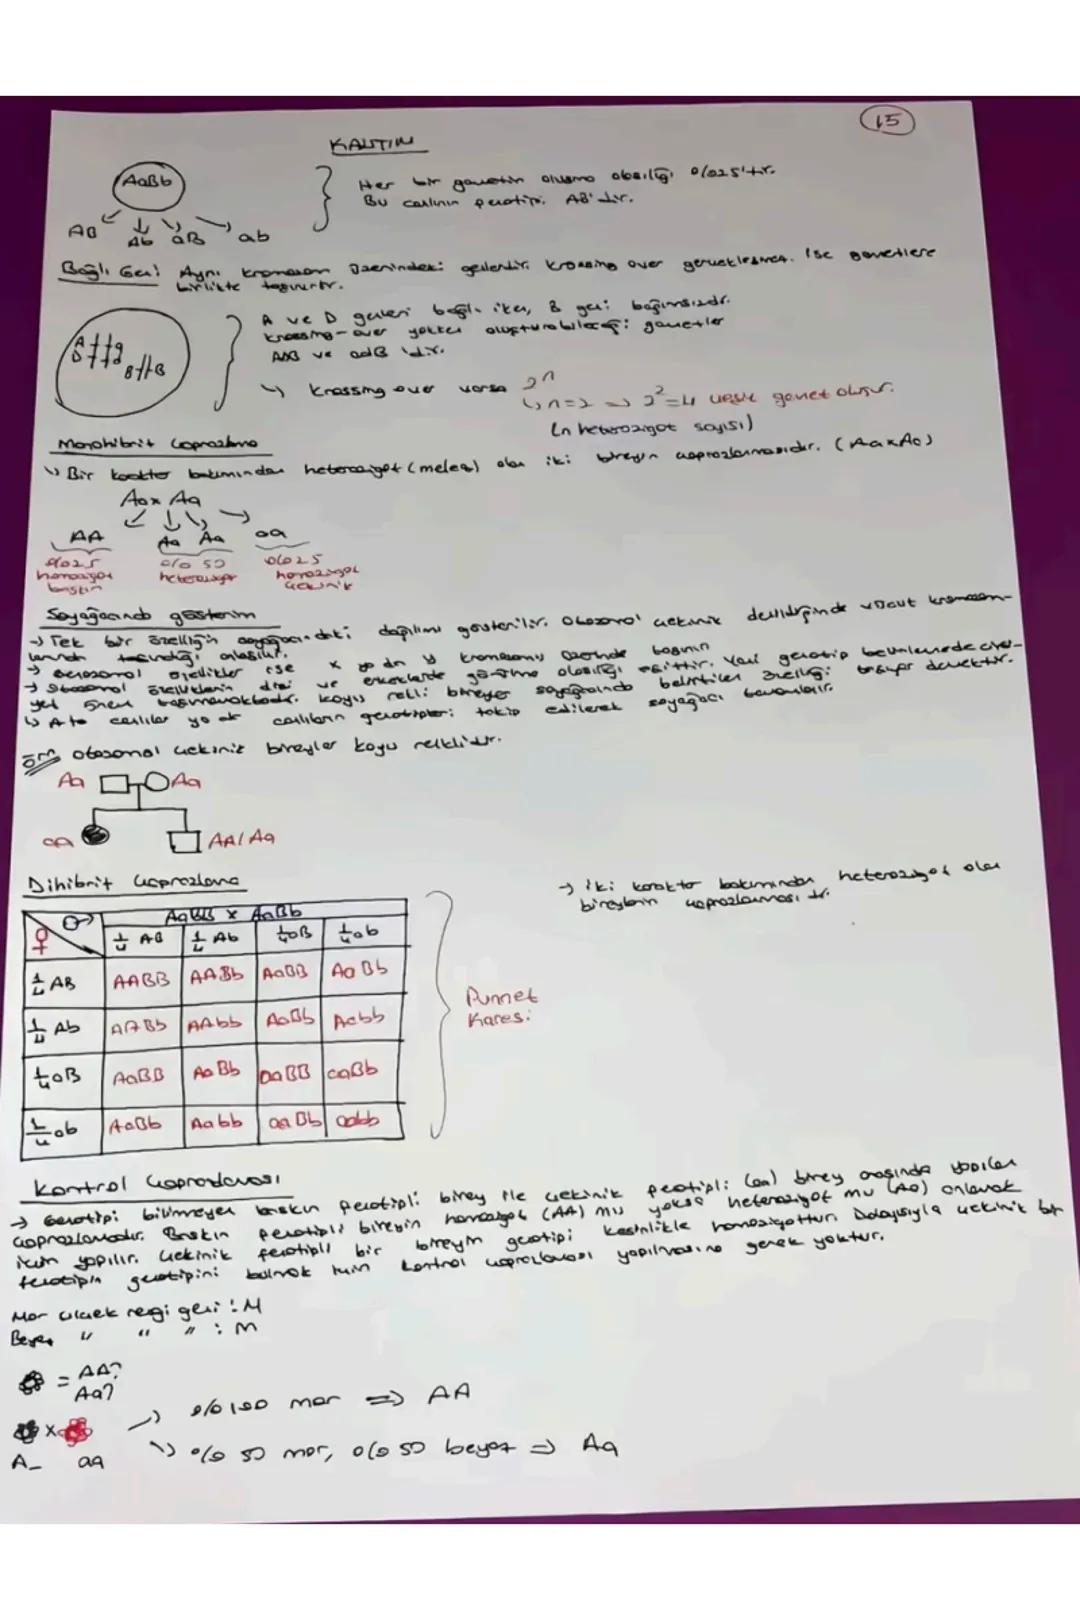 15
KALITIM
AaBb
AB Ab aB ab
Her bir gametin oluşma olasılığı %25'tir.
Bu canlının fenotipi AB'dir.
Bağlı Gen: Aynı kromozom üzerindeki genlerdir. Krossing over gerçekleşmez ise gametlere
birlikte taşınırlar.
A a
D d
B B
A ve D genleri bağlı iken, B geni bağımsızdır.
krossing-over yokken oluşturabileceği gametler
ADB ve adB 'dir.
↳ krossing over varsa 2ⁿ
↳ n=2 => 2²=4 çeşit gamet oluşur.
(n heterozigot sayısı)
Monohibrit Çaprazlama
↳ Bir karakter bakımından heterozigot (melez) olan iki bireyin çaprazlanmasıdır. (AaxAa)
Aa x Aa
AA Aa Aa aa
%25 %50 %25
homozigot heterozigot homozigot
baskın çekinik
Soyağacında gösterim
→ Tek bir özelliğin soyağacındaki dağılımı gösterilir. Otozomal çekinik denildiğinde vücut kromozom-
larında taşındığı anlaşılır.
→ Gonozomal özellikler ise X ya da Y kromozomu üzerinde
→ Otozomal özelliklerin dişi ve erkeklerde görülme olasılığı eşittir. Yani genotip belirlenmede cinsi-
yet önem taşımamaktadır. Koyu renkli bireyler soyağacında belirtilen özelliği taşıyor demektir.
↳ Ata canlılar ya da canlıların genotipleri takip edilerek soyağacı
Örn otozomal çekinik bireyler koyu renklidir.
Aa Aa
aa AA/Aa
Dihibrit Çaprazlama
→ İki karakter bakımından heterozigot olan
bireylerin çaprazlanması dır.
AaBb x AaBb
♀ ♂ 1/4 AB 1/4 Ab 1/4 aB 1/4 ab
1/4 AB AABB AABb AaBB AaBb
1/4 Ab AABb AAbb AaBb Aabb
1/4 aB AaBB AaBb aaBB aaBb
1/4 ab AaBb Aabb aaBb aabb
Punnet
Karesi
Kontrol Çaprazlaması
→ Genotipi bilinmeyen baskın fenotipli birey ile çekinik fenotipli (aa) birey arasında yapılan
çaprazlamadır. Baskın fenotipli bireyin homozigot (AA) mu yoksa heterozigot mu (Aa) anlamak
için yapılır. Çekinik fenotipli bir bireyin genotipi kesinlikle homozigottur. Dolayısıyla çekinik bir
fenotipin genotipini bulmak için kontrol çaprazlaması yapılmasına gerek yoktur.
Mor çiçek rengi geni : M
Beyaz " " " : m
= AA?
Aa?
x → %100 mor => AA
A_ aa ↳ %50 mor, %50 beyaz => Aa